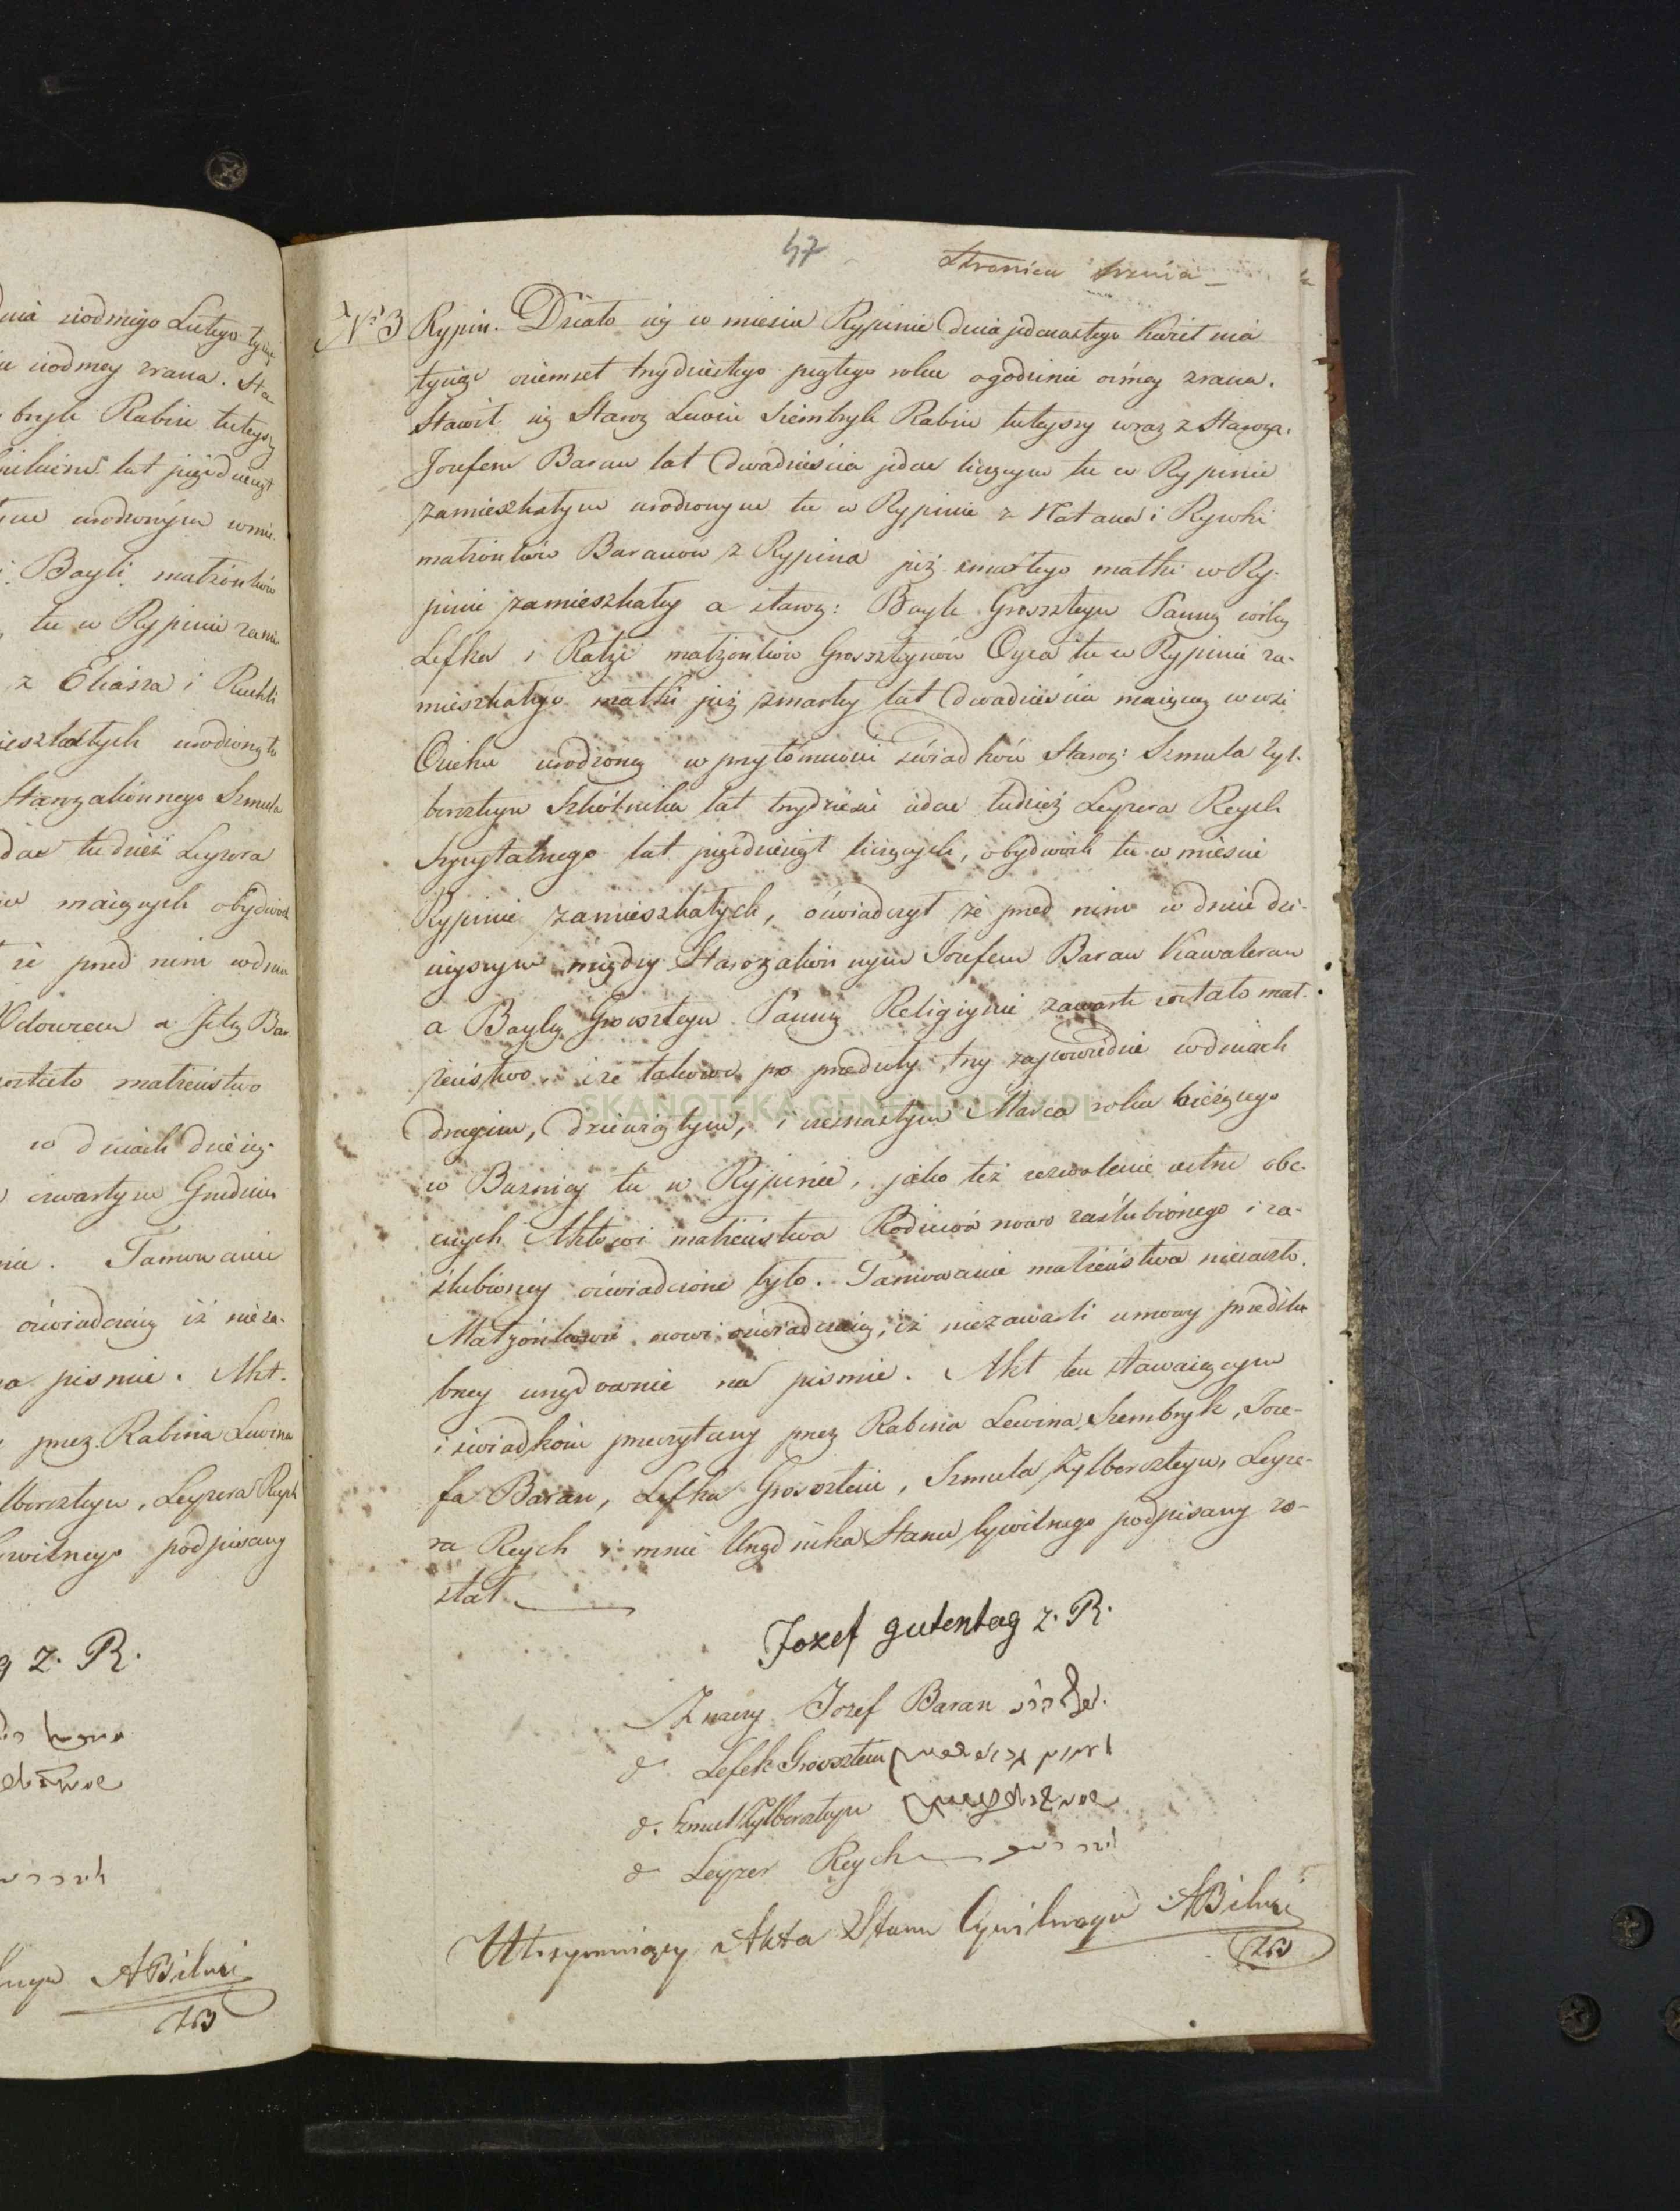 nia siódmego Lutego tysiąc
siodmey zrana. Sta
bryk Rabin tuteyszy
lat pięcdziesiąt
urodzonym w mie
i Bayli małżonków
tu w Rypinie zami
z Eliasza i Ruchli
ieszkałych urodzoną tu
Starozakonnego Szmula
tudzież Leyzera
maiących obydwoch
że pred nim w dniu
Wdowcem a Bar
zostało małżeństwo
w dniach
czwartym Grudnia
nia. Tamowanie
oświadczaią iż nieza
na pismie. Akt
prez Rabina Lewina
lbersteyn, Leyzera Reych
cywilnego podpisany
g z. R.
ABilski
47
Stronica trzecia
No 3 Rypin. Działo się w mieście Rypinie dnia jedenastego Kwietnia
tysiąc osiemset trzydziestego piątego roku o godzinie ósmey zrana.
Stawił się Staroz Lewin Szembryk Rabin tuteyszy wraz z Staroza.
Jozefem Baran lat dwadzieścia jeden liczącym tu w Rypinie
zamieszkałym urodzonym tu w Rypinie z Natana i Rywki
małżonków Baranow z Rypina już zmarłego matki w Ry-
pinie zamieszkałey a staroz: Bayle Groszteyn Panną córką
Lefka i małżonków Grosszteynów Oyca tu w Rypinie za-
mieszkałego matki już zmarłey lat dwadzieścia maiącą w wsi
urodzoną w przytomności świadków Staroz: Szmula Zyl-
bersteyn Szkólnika lat trzydzieści tudzież Leyzera Reych
Szpytalnego lat pięcdziesiąt liczących, obydwóch tu w mieście
Rypinie zamieszkałych, oświadczył że pred nim w dniu dzi-
sieyszym między Starozakonnym Jozefem Baran Kawalerem
a Baylą Groszteyn Panną Religiynie zawarte zostało mał-
żeństwo, i że takowe po predziły try zapowiedzie w dniach
drugim, dziewiątym, i szesnastym Marca roku bieżącego
w Buznicy tu w Rypinie, jako też zezwolenie ustne obe-
cnych Aktowi małżeństwa Rodziców nowo zaślubionego i za-
ślubioney oświadczone było. Tamowanie małżeństwa niezaszło.
Małżonkowie nowi oświadczaią, iż niezawarli umowy predślu
bney urzędownie na pismie. Akt ten stawaiącym
i świadkom preczytany prez Rabina Lewina Szembryk, Joze-
fa Baran, Lefka Grossztein, Szmula Zylbersteyn, Leyze-
ra Reych i mnie Urzędnika Stanu Cywilnego podpisany zo-
stał
Jozef gutentag z. R.
Znaczy Jozef Baran
d Lefek Grosstein
d. Szmul Zylberszteyn
d Leyzer Reych
Utrzymuiący Akta Stanu Cywilnego ABilski